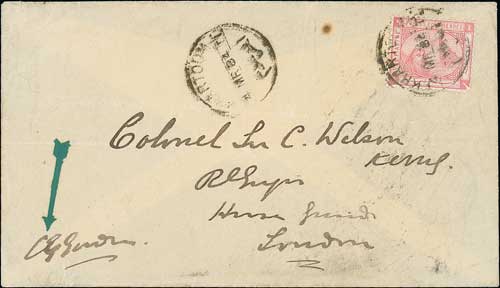 KHARTOUM
MR 84
KHARTOUM
MR 84
Colonel Sir C. Wilson
KCMG
R Engrs
Horse Guards
London
CGGordon